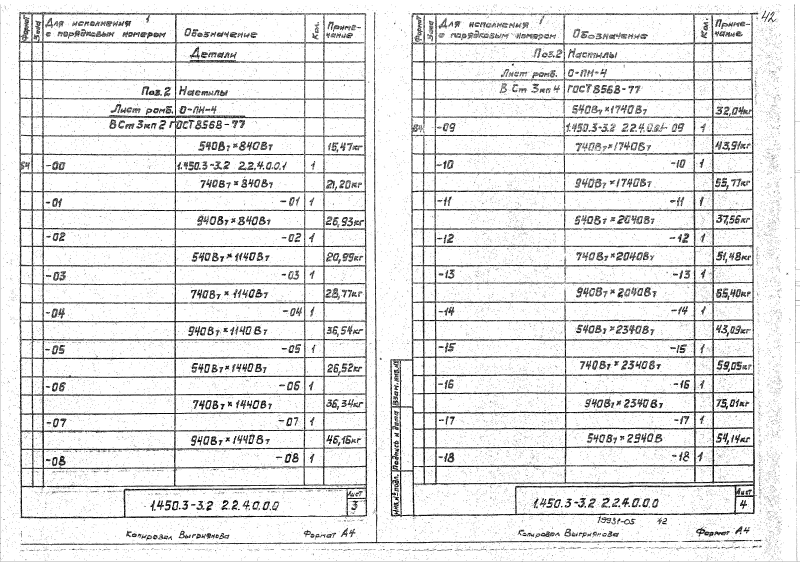 42
Формат Зона Для исполнения с порядковым номером 1 Обозначение Кол. Примечание
Детали
Поз.2 Настилы
Лист ромб. О-ПН-4
ВСт 3кп2 ГОСТ 8568-77
540Вт×840Вт 15,47кг
Б4 -00 1.450.3-3.2 2.2.4.0.0.1 1
740Вт×840Вт 21,20кг
-01 -01 1
940Вт×840Вт 26,93кг
-02 -02 1
540Вт×1140Вт 20,99кг
-03 -03 1
740Вт×1140Вт 28,77кг
-04 -04 1
940Вт×1140Вт 36,54кг
-05 -05 1
540Вт×1440Вт 26,52кг
-06 -06 1
740Вт×1440Вт 36,34кг
-07 -07 1
940Вт×1440Вт 46,16кг
-08 -08 1
1.450.3-3.2 2.2.4.0.0.0 Лист 3
Копировал Выгриянова Формат А4
Формат Зона Для исполнения с порядковым номером 1 Обозначение Кол. Примечание
Поз.2 Настилы
Лист ромб. О-ПН-4
ВСт 3кп4 ГОСТ 8568-77
540Вт×1740Вт 32,04кг
Б4 -09 1.450.3-3.2 2.2.4.0.0.1-09 1
740Вт×1740Вт 43,91кг
-10 -10 1
940Вт×1740Вт 55,77кг
-11 -11 1
540Вт×2040Вт 37,56кг
-12 -12 1
740Вт×2040Вт 51,48кг
-13 -13 1
940Вт×2040Вт 65,40кг
-14 -14 1
540Вт×2340Вт 43,09кг
-15 -15 1
740Вт×2340Вт 59,05кг
-16 -16 1
940Вт×2340Вт 75,01кг
-17 -17 1
540Вт×2940В 54,14кг
-18 -18 1
Инв.№ подл. Подпись и дата Взам. инв.№
1.450.3-3.2 2.2.4.0.0.0 Лист 4
19931-05 42
Копировал Выгриянова Формат А4